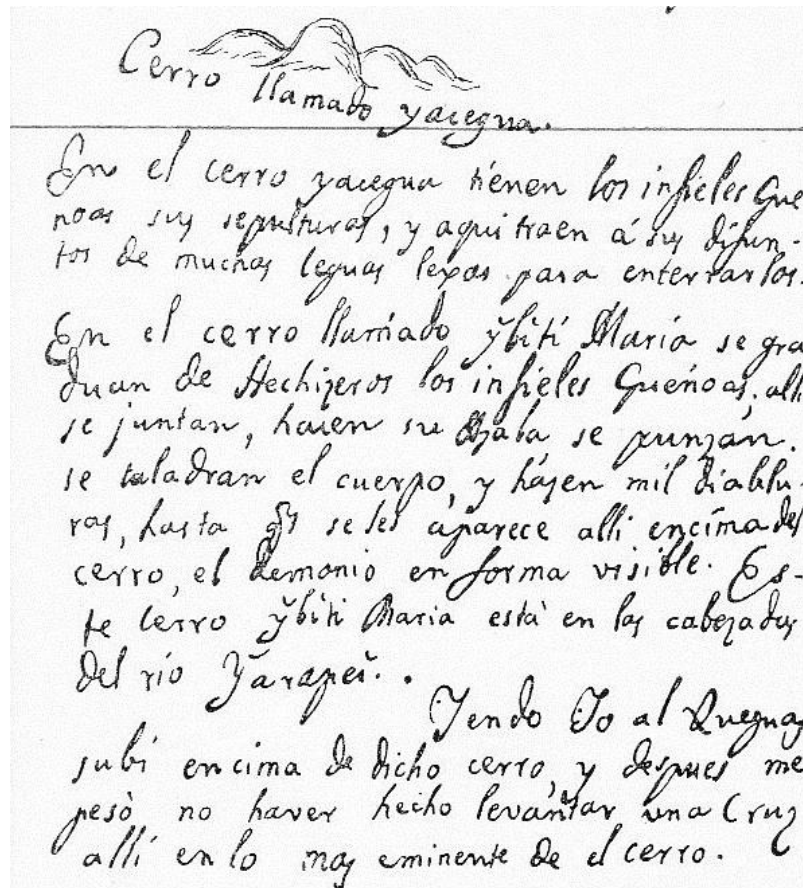 Cerro
llamado yacegua.
En el cerro yacegua tienen los infieles Gue
noas sus sepulturas, y aqui traen á sus difun-
tos de muchas leguas lexos para enterrarlos.
En el cerro llamado ỹbĭtí María se gra
duan de Hechizeros los infieles Guenoas; alli
se juntan, hacen su se punzan.
se taladran el cuerpo, y házen mil diablu-
ras, hasta se les aparece alli enzima del
cerro, el demonio en forma visible. Es-
te Cerro ỹbĭti Maria está en las cabezadas
del rio
Yendo Yo al Queguay
subí encima de dicho cerro, y despues me
pesò no haver hecho levantar una Cruz
allí en lo mas eminente de el cerro.